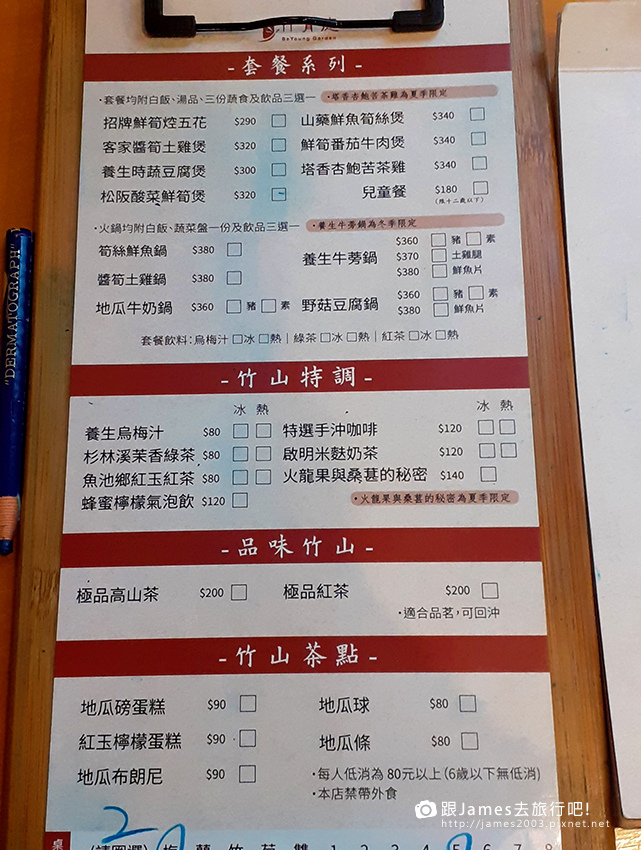 BaYoung Garden
-套餐系列-
·套餐均附白飯、湯品、三份蔬食及飲品三選一 •塔香杏鮑苦茶雞為夏季限定
招牌鮮筍焢五花 $290 山藥鮮魚筍絲煲 $340
客家醬筍土雞煲 $320 鮮筍番茄牛肉煲 $340
養生時蔬豆腐煲 $300 塔香杏鮑苦茶雞 $340
松阪酸菜鮮筍煲 $320 兒童餐 $180
(限十二歲以下)
·火鍋均附白飯、蔬菜盤一份及飲品三選一 •養生牛蒡鍋為冬季限定
筍絲鮮魚鍋 $380
醬筍土雞鍋 $380
地瓜牛奶鍋 $360 豬 素
養生牛蒡鍋 $360 豬 素
$370 土雞腿
$380 鮮魚片
野菇豆腐鍋 $360 豬 素
$380 鮮魚片
套餐飲料:烏梅汁 冰 熱 | 綠茶 冰 熱 | 紅茶 冰 熱
-竹山特調-
冰 熱 冰 熱
養生烏梅汁 $80 特選手沖咖啡 $120
杉林溪茉香綠茶 $80 啟明米麩奶茶 $120
魚池鄉紅玉紅茶 $80 火龍果與桑葚的秘密 $140
蜂蜜檸檬氣泡飲 $120 •火龍果與桑葚的秘密為夏季限定
-品味竹山-
極品高山茶 $200 極品紅茶 $200
·適合品茗,可回沖
-竹山茶點-
地瓜磅蛋糕 $90 地瓜球 $80
紅玉檸檬蛋糕 $90 地瓜條 $80
地瓜布朗尼 $90 ·每人低消為 80元以上(6歲以下無低消)
·本店禁帶外食
桌 (請圈選) 梅 蘭 竹 菊 雙 1 2 3 4 5 6 7 8
"DERMATOGRAPH"
跟James去旅行吧!
http://james2003.pixnet.net